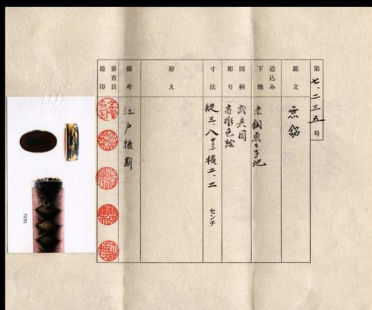 第七、二三五号
銘文 無銘
造込み 下地 赤銅魚々子地
図柄 彫り 武具図 高彫色絵
寸法 縦三、八 横二、二 センチ
拵え
備考 江戸後期
審査員 略印
7235